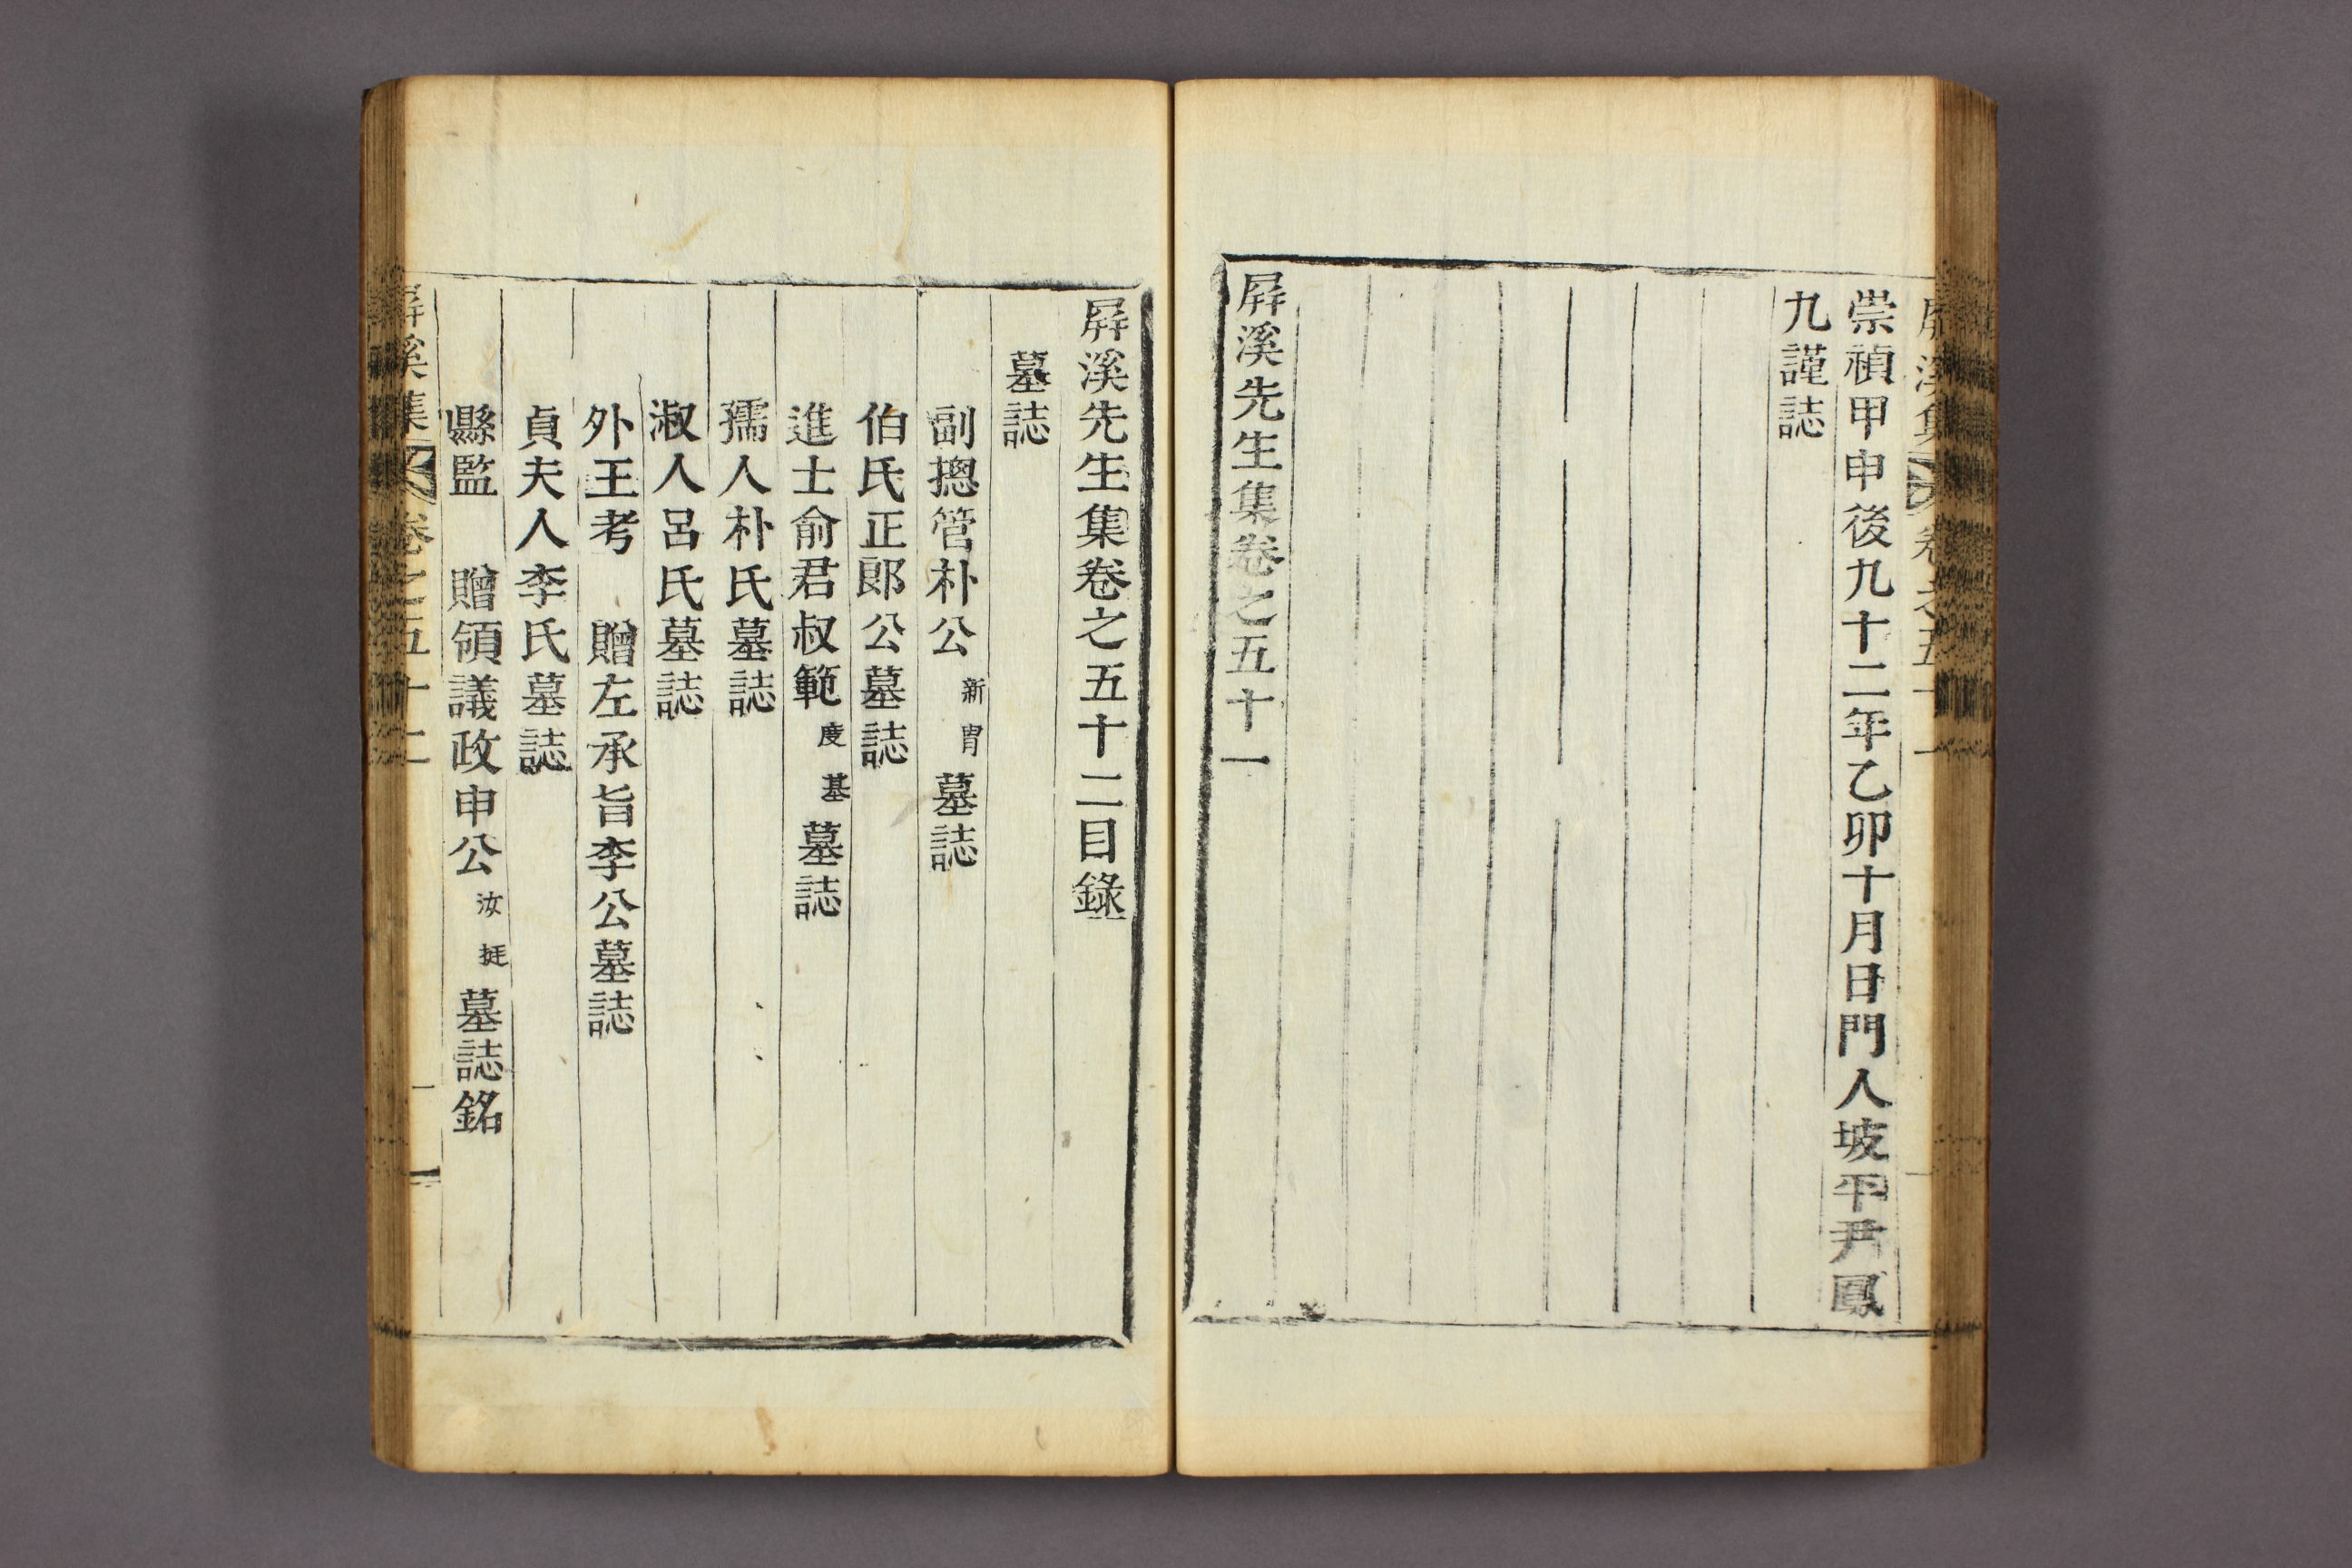 屛溪集 卷之五十一
崇禎甲申後九十二年乙卯十月日門人坡平尹鳳
九謹誌
屛溪先生集卷之五十一
屛溪先生集卷之五十二目錄
墓誌
副摠管朴公新冑墓誌
伯氏正郞公墓誌
進士俞君叔範度基墓誌
孺人朴氏墓誌
淑人呂氏墓誌
外王考 贈左承旨李公墓誌
貞夫人李氏墓誌
縣監 贈領議政申公汝挻墓誌銘
屛溪集 卷之五十二 一